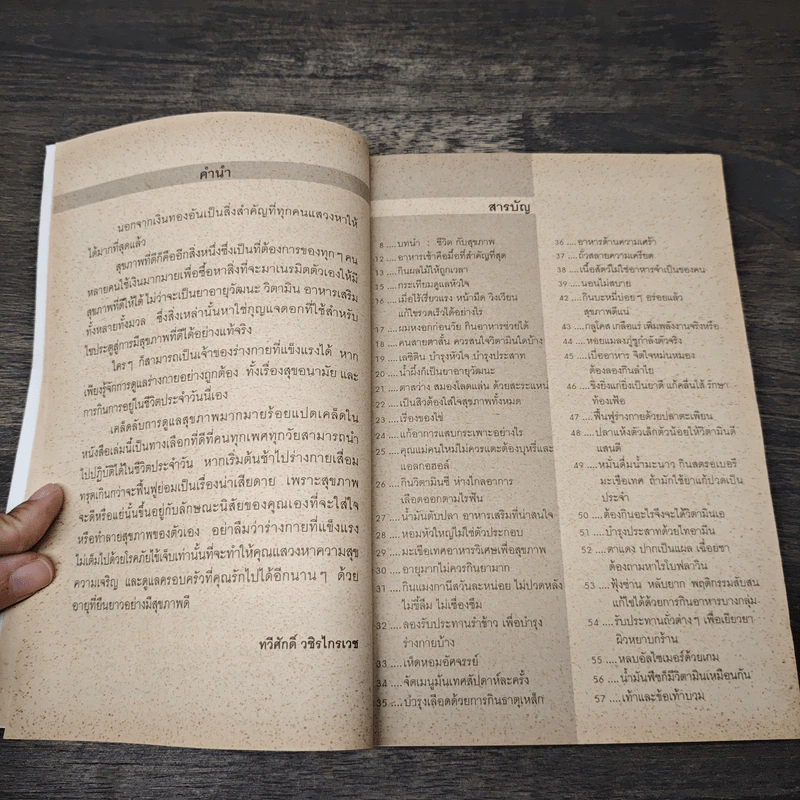 คำนำ
นอกจากเงินทองอันเป็นสิ่งสำคัญที่ทุกคนแสวงหาให้
ได้มากที่สุดแล้ว
สุขภาพที่ดีก็คืออีกสิ่งหนึ่งซึ่งเป็นที่ต้องการของทุกๆ คน
หลายคนใช้เงินมากมายเพื่อซื้อหาสิ่งที่จะมาเนรมิตตัวเองให้มี
สุขภาพที่ดีให้ได้ ไม่ว่าจะเป็นยาอายุวัฒนะ วิตามิน อาหารเสริม
ทั้งหลายทั้งมวล ซึ่งสิ่งเหล่านั้นหาใช่กุญแจดอกที่ใช้สำหรับ
ไขประตูสู่การมีสุขภาพที่ดีได้อย่างแท้จริง
ใครๆ ก็สามารถเป็นเจ้าของร่างกายที่แข็งแรงได้ หาก
เพียงรู้จักการดูแลร่างกายอย่างถูกต้อง ทั้งเรื่องสุขอนามัย และ
การกินการอยู่ในชีวิตประจำวันนี้เอง
เคล็ดลับการดูแลสุขภาพมากมายร้อยแปดเคล็ดใน
หนังสือเล่มนี้เป็นทางเลือกที่ดีที่คนทุกเพศทุกวัยสามารถนำ
ไปปฏิบัติได้ในชีวิตประจำวัน หากเริ่มต้นช้าไปร่างกายเสื่อม
ทรุดเกินกว่าจะฟื้นฟูย่อมเป็นเรื่องน่าเสียดาย เพราะสุขภาพ
จะดีหรือแย่นั้นขึ้นอยู่กับลักษณะนิสัยของคุณเองที่จะใส่ใจ
หรือทำลายสุขภาพของตัวเอง อย่าลืมว่าร่างกายที่แข็งแรง
ไม่เต็มไปด้วยโรคภัยไข้เจ็บเท่านั้นที่จะทำให้คุณแสวงหาความสุข
ความเจริญ และดูแลครอบครัวที่คุณรักไปได้อีกนานๆ ด้วย
อายุที่ยืนยาวอย่างมีสุขภาพดี
ทวีศักดิ์ วชิรไกรเวช
สารบัญ
8 ....บทนำ : ชีวิต กับสุขภาพ
12 ....อาหารเช้าคือมื้อที่สำคัญที่สุด
13 ....กินผลไม้ให้ถูกเวลา
15 ....กระเทียมดูแลหัวใจ
16 ....เมื่อไร้เรี่ยวแรง หน้ามืด วิงเวียน
แก้ไขรวดเร็วได้อย่างไร
17 ....ผมหงอกก่อนวัย กินอาหารช่วยได้
18 ....คนสายตาสั้น ควรสนใจวิตามินใดบ้าง
19 ....เลซิติน บำรุงหัวใจ บำรุงประสาท
20 ....น้ำผึ้งก็เป็นยาอายุวัฒนะ
21 ....ตาสว่าง สมองไลดแล่น ด้วยสะระแหน่
22 ....เป็นสิวต้องใส่ใจสุขภาพทั้งหมด
23 ....เรื่องของไข่
24 ....แก้อาการแสบกระเพาะอย่างไร
25 ....คุณแม่คนใหม่ไม่ควรแตะต้องบุหรี่และ
แอลกอฮอล์
26 ....กินวิตามินซี ห่างไกลอาการ
เลือดออกตามไรฟัน
27 ....น้ำมันตับปลา อาหารเสริมที่น่าสนใจ
28 ....หอมหัวใหญ่ไม่ใช่ตัวประกอบ
29 ....มะเขือเทศอาหารวิเศษเพื่อสุขภาพ
30 ....อายุมากไม่ควรกินยามาก
31 ....กินแมงกานีสวันละหน่อย ไม่ปวดหลัง
ไม่ขี้ลืม ไม่เชื่องซึม
32 ....ลองรับประทานรำข้าว เพื่อบำรุง
ร่างกายบ้าง
33 ....เห็ดหอมอัศจรรย์
34 ....จัดเมนูมันเทศสัปดาห์ละครั้ง
35 ....บำรุงเลือดด้วยการกินธาตุเหล็ก
36 ....อาหารต้านความเศร้า
37 ....ถั่วสลายความเครียด
38 ....เนื้อสัตว์ไม่ใช่อาหารจำเป็นของคน
39 ....นอนไม่สบาย
42 ....กินบะหมี่บ่อยๆ อร่อยแล้ว
สุขภาพดีแน่
43 ....กลูโคส เกลือแร่ เพิ่มพลังงานจริงหรือ
44 ....หอยแมลงภู่ชูกำลังตัวจริง
45 ....เบื่ออาหาร จิตใจหม่นหมอง
ต้องลองกินลำไย
46 ....ขิงยิ่งแก่ยิ่งเป็นยาดี แก้คลื่นไส้ รักษา
ท้องเฟ้อ
47 ....ฟื้นฟูร่างกายด้วยปลาตะเพียน
48 ....ปลาแห้งตัวเล็กตัวน้อยให้วิตามินดี
แสนดี
49 ....หมั่นดื่มน้ำมะนาว กินสตรอเบอรี่
มะเขือเทศ ถ้ามักใช้ยาแก้ปวดเป็น
ประจำ
50 ....ต้องกินอะไรจึงจะได้วิตามินเอ
51 ....บำรุงประสาทด้วยไทอามีน
52 ....ตาแดง ปากเป็นแผล เฉื่อยชา
ต้องถามหาไรโบฟลาวิน
53 ....ฟุ้งซ่าน หลับยาก พฤติกรรมสับสน
แก้ไขได้ด้วยการกินอาหารบางกลุ่ม
54 ....รับประทานถั่วต่างๆ เพื่อเยียวยา
ผิวหยาบกร้าน
55 ....หลบอัลไซเมอร์ด้วยเกม
56 ....น้ำมันพืชก็มีวิตามินเหมือนกัน
57 ....เท้าและข้อเท้าบวม